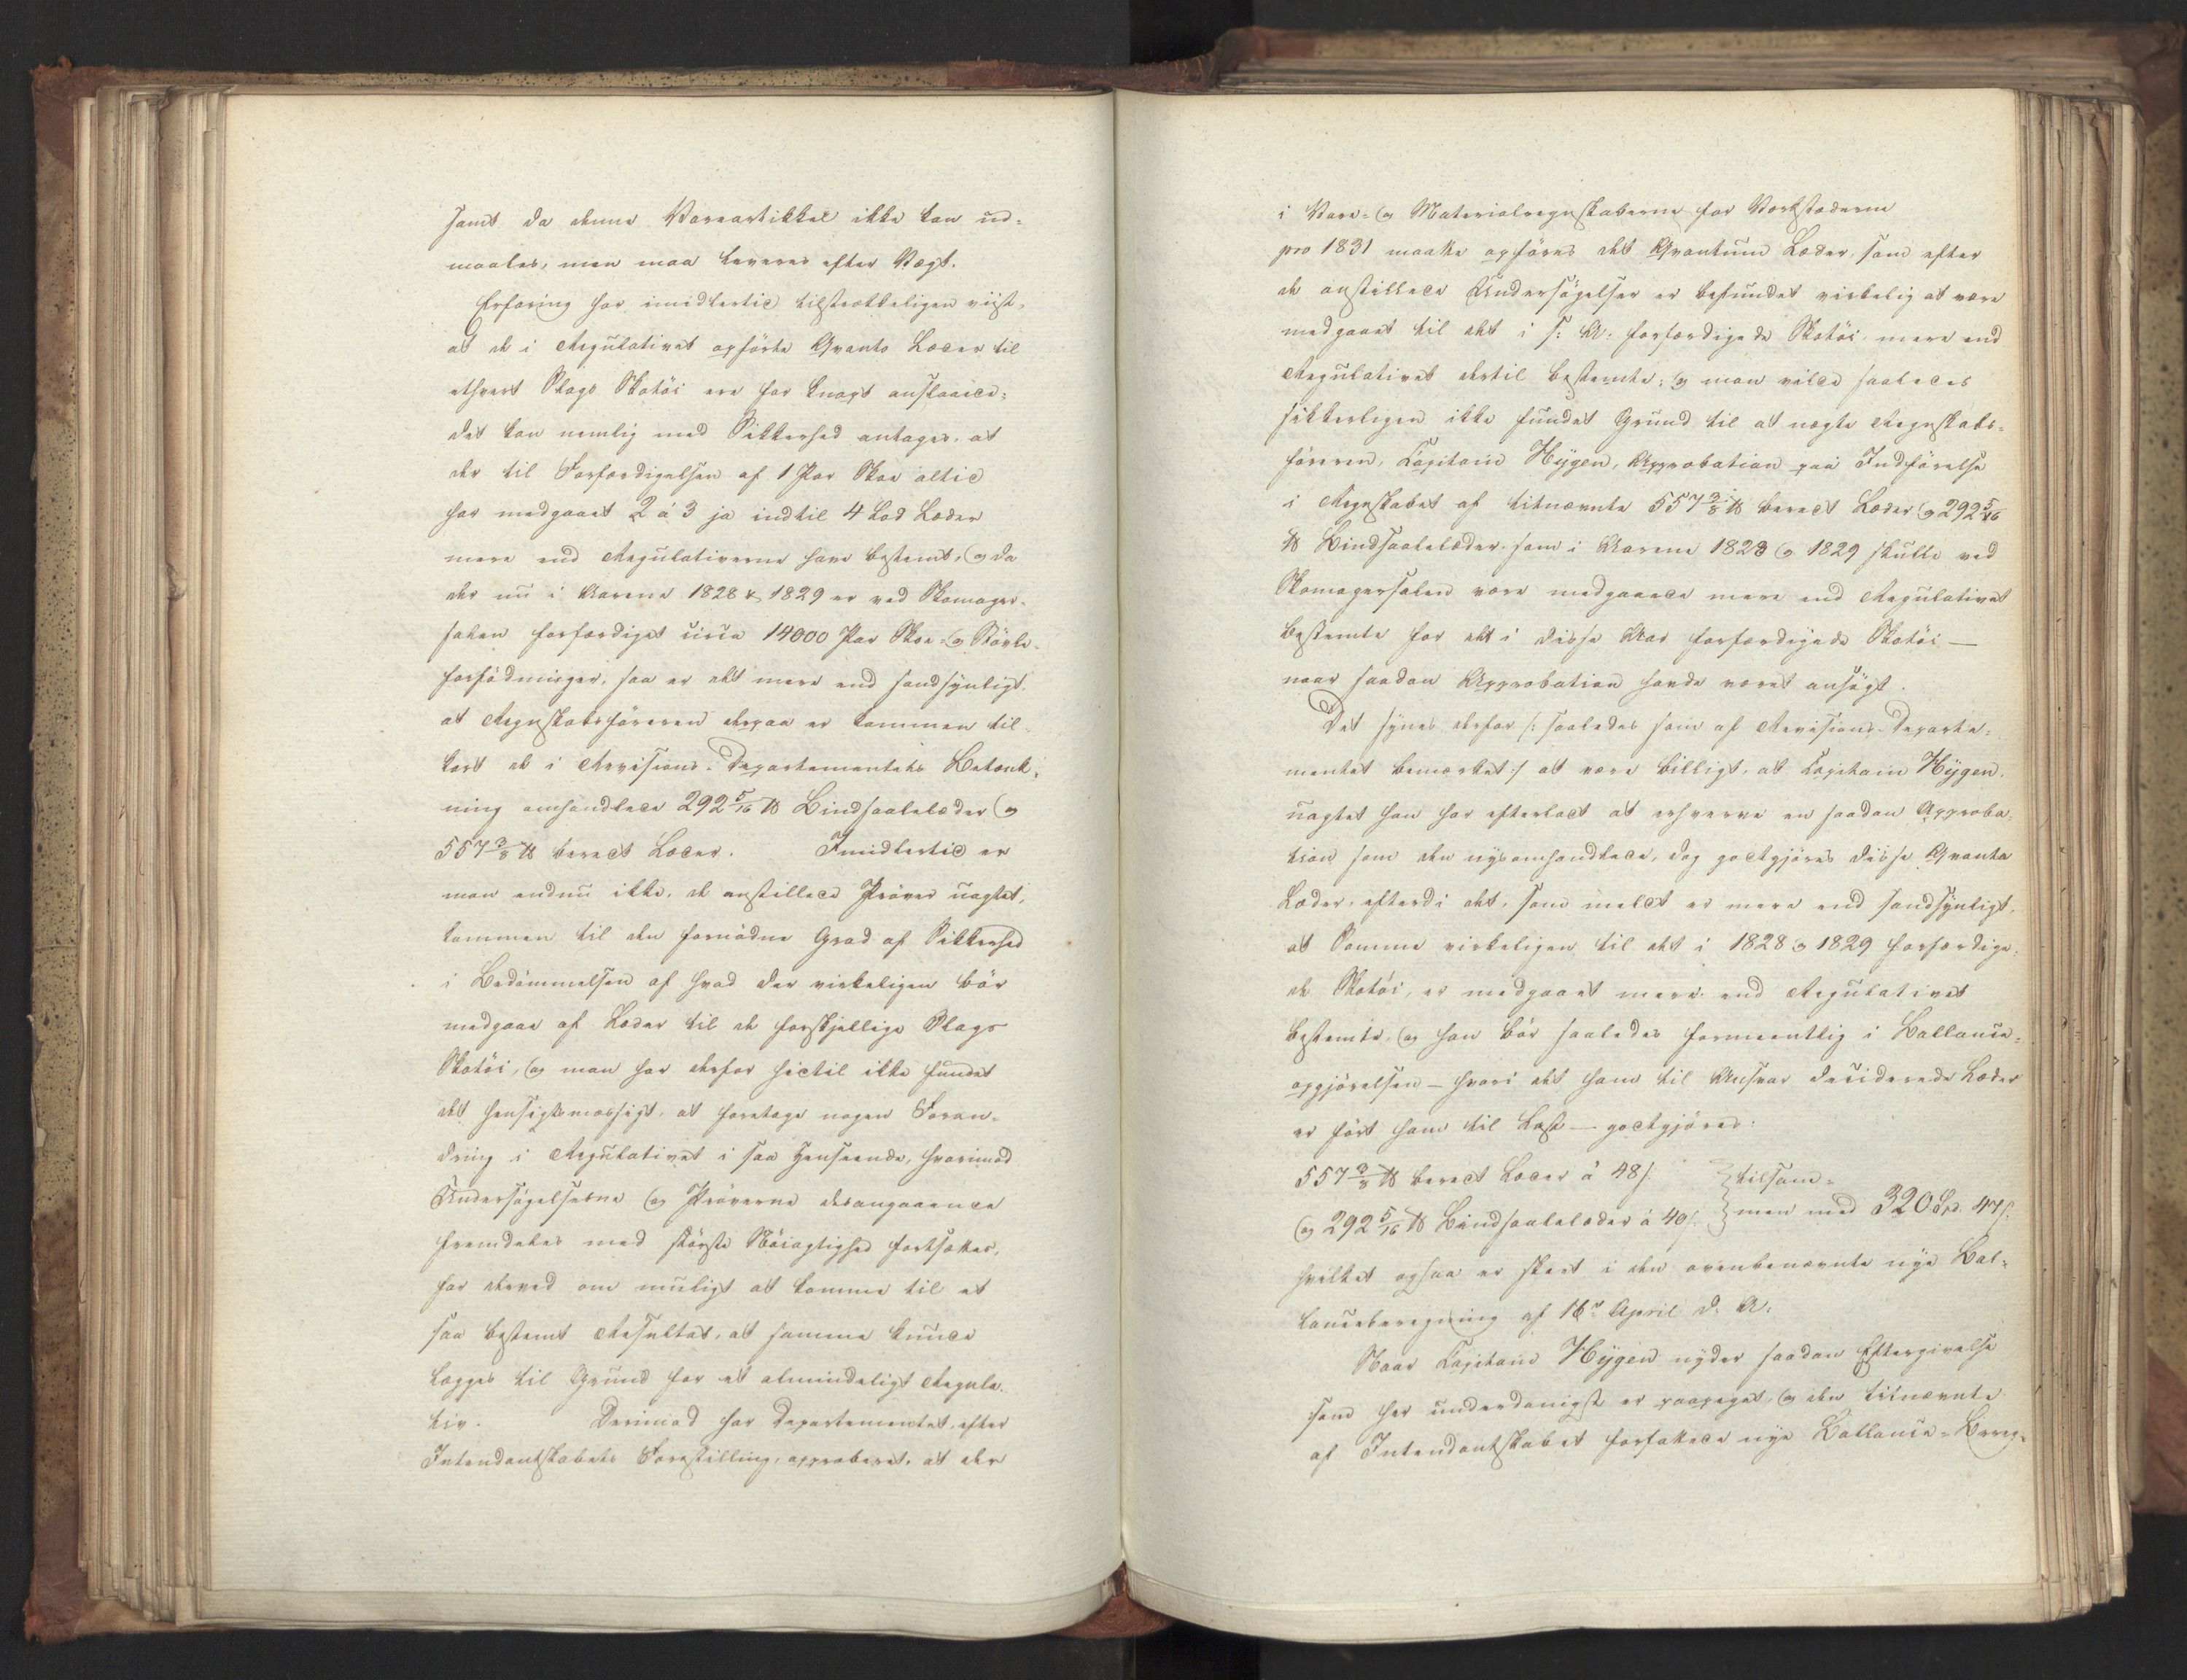 samt da denne Vareartikkel ikke kan ud-
maales, men maa leveres efter Vægt.
Erfaring har imidlertid tilstrækkeligen viist,
at de i Regulativet opförte Qvanta Læder til
ethvert Slags Skotöi ere for knapt anslaaede;
det kan nemlig med Sikkerhed antages, at
der til Forfærdigelsen af 1 Par Skoe altid
har medgaaet 2 á 3 ja indtil 4 Lod Læder
mere end Regulativerne have bestemt, og da
der nu i Aarene 1828 & 1829 er ved Skomager-
salen forfærdiget circa 14000 Par Skoe- og Stövle-
forfödninger, saa er det mere end sandsynligt,
at Regnskabsföreren derpaa er kommen til-
kort de i Revisions-Departementets Betænk-
ning omhandlede 292 5/16 ℔ Bindsaalelæder og
557 3/8 ℔ beredt Læder. Imidlertid er
man endnu ikke, de anstillede Pröver uagtet,
kommen til den fornödne Grad af Sikkerhed
i Bedömmelsen af hvad der virkeligen bör
medgaae af Læder til de forskjellige Slags
Skotöi, og man har derfor hidtil ikke fundet
det hensigtsmæssigt, at foretage nogen Foran-
dring i Regulativet i saa Henseende, hvorimod
Undersögelserne og Pröverne desangaaende
fremdeles med störste Nöiagtighed fortsættes,
for derved om muligt at komme til et
saa bestemt Resultat, at samme kunde
lægges til Grund for et almindeligt Regula-
tiv. Derimod har Departementet, efter
Intendantskabets Forestilling, approberet, at der
i Vare- og Materialregnskaberne for Værkstæderne
pro 1831 maatte opföres det Qvantum Læder, som efter
de anstillede Undersögelser er befundet virkelig at være
medgaaet til det i s: A: forfærdigede Skotöi, mere end
Regulativet dertil bestemte; og man vilde saaledes
sikkerligen ikke fundet Grund til at nægte Regnskabs-
föreren, Capitain Hÿgen, Approbation paa Indförelse
i Regnskabet af bemeldte 557 3/8 ℔ beredt Læder og 292 5/16
℔ Bindsaalelæder, som i Aarene 1828 og 1829 skulle ved
Skomagersalen være medgaaede mere end Regulativet
bestemte for det i disse Aar forfærdigede Skotöi —
naar saadan Approbation havde været ansögt.
Det synes derfor /: saaledes som af Revisions-Departe-
mentet bemærket :/ at være billigt, at Capitain Hÿgen,
uagtet han har efterladt at erhverve en saadan Approba-
tion som den nysomhandlede, dog godtgjöres disse Qvanta
Læder, efterdi det, som meldt er mere end sandsynligt,
at Samme virkeligen til det i 1828 og 1829 forfærdige-
de Skotöi, er medgaaet mere end Regulativet
bestemte, og han bör saaledes formeentlig i Ballance-
opgjörelsen — hvori det ham til Ansvar deciderede Læder
er fört ham til Last — godtgjöres:
557 3/8 ℔ beredt Læder á 48 s. } tilsam-
og 292 5/16 ℔ Bindsaalelæder á 40 s. } men med 320 Spd. 47 s.
hvilket ogsaa er skeet i den ovenbenævnte nye Bal-
lanceberegning af 16de April d: A:
Naar Capitain Hÿgen nyder saadan Eftergivelse
som her underdanigst er paapeget, og den
af Intendantskabet forfattede nye Ballance-Bereg-